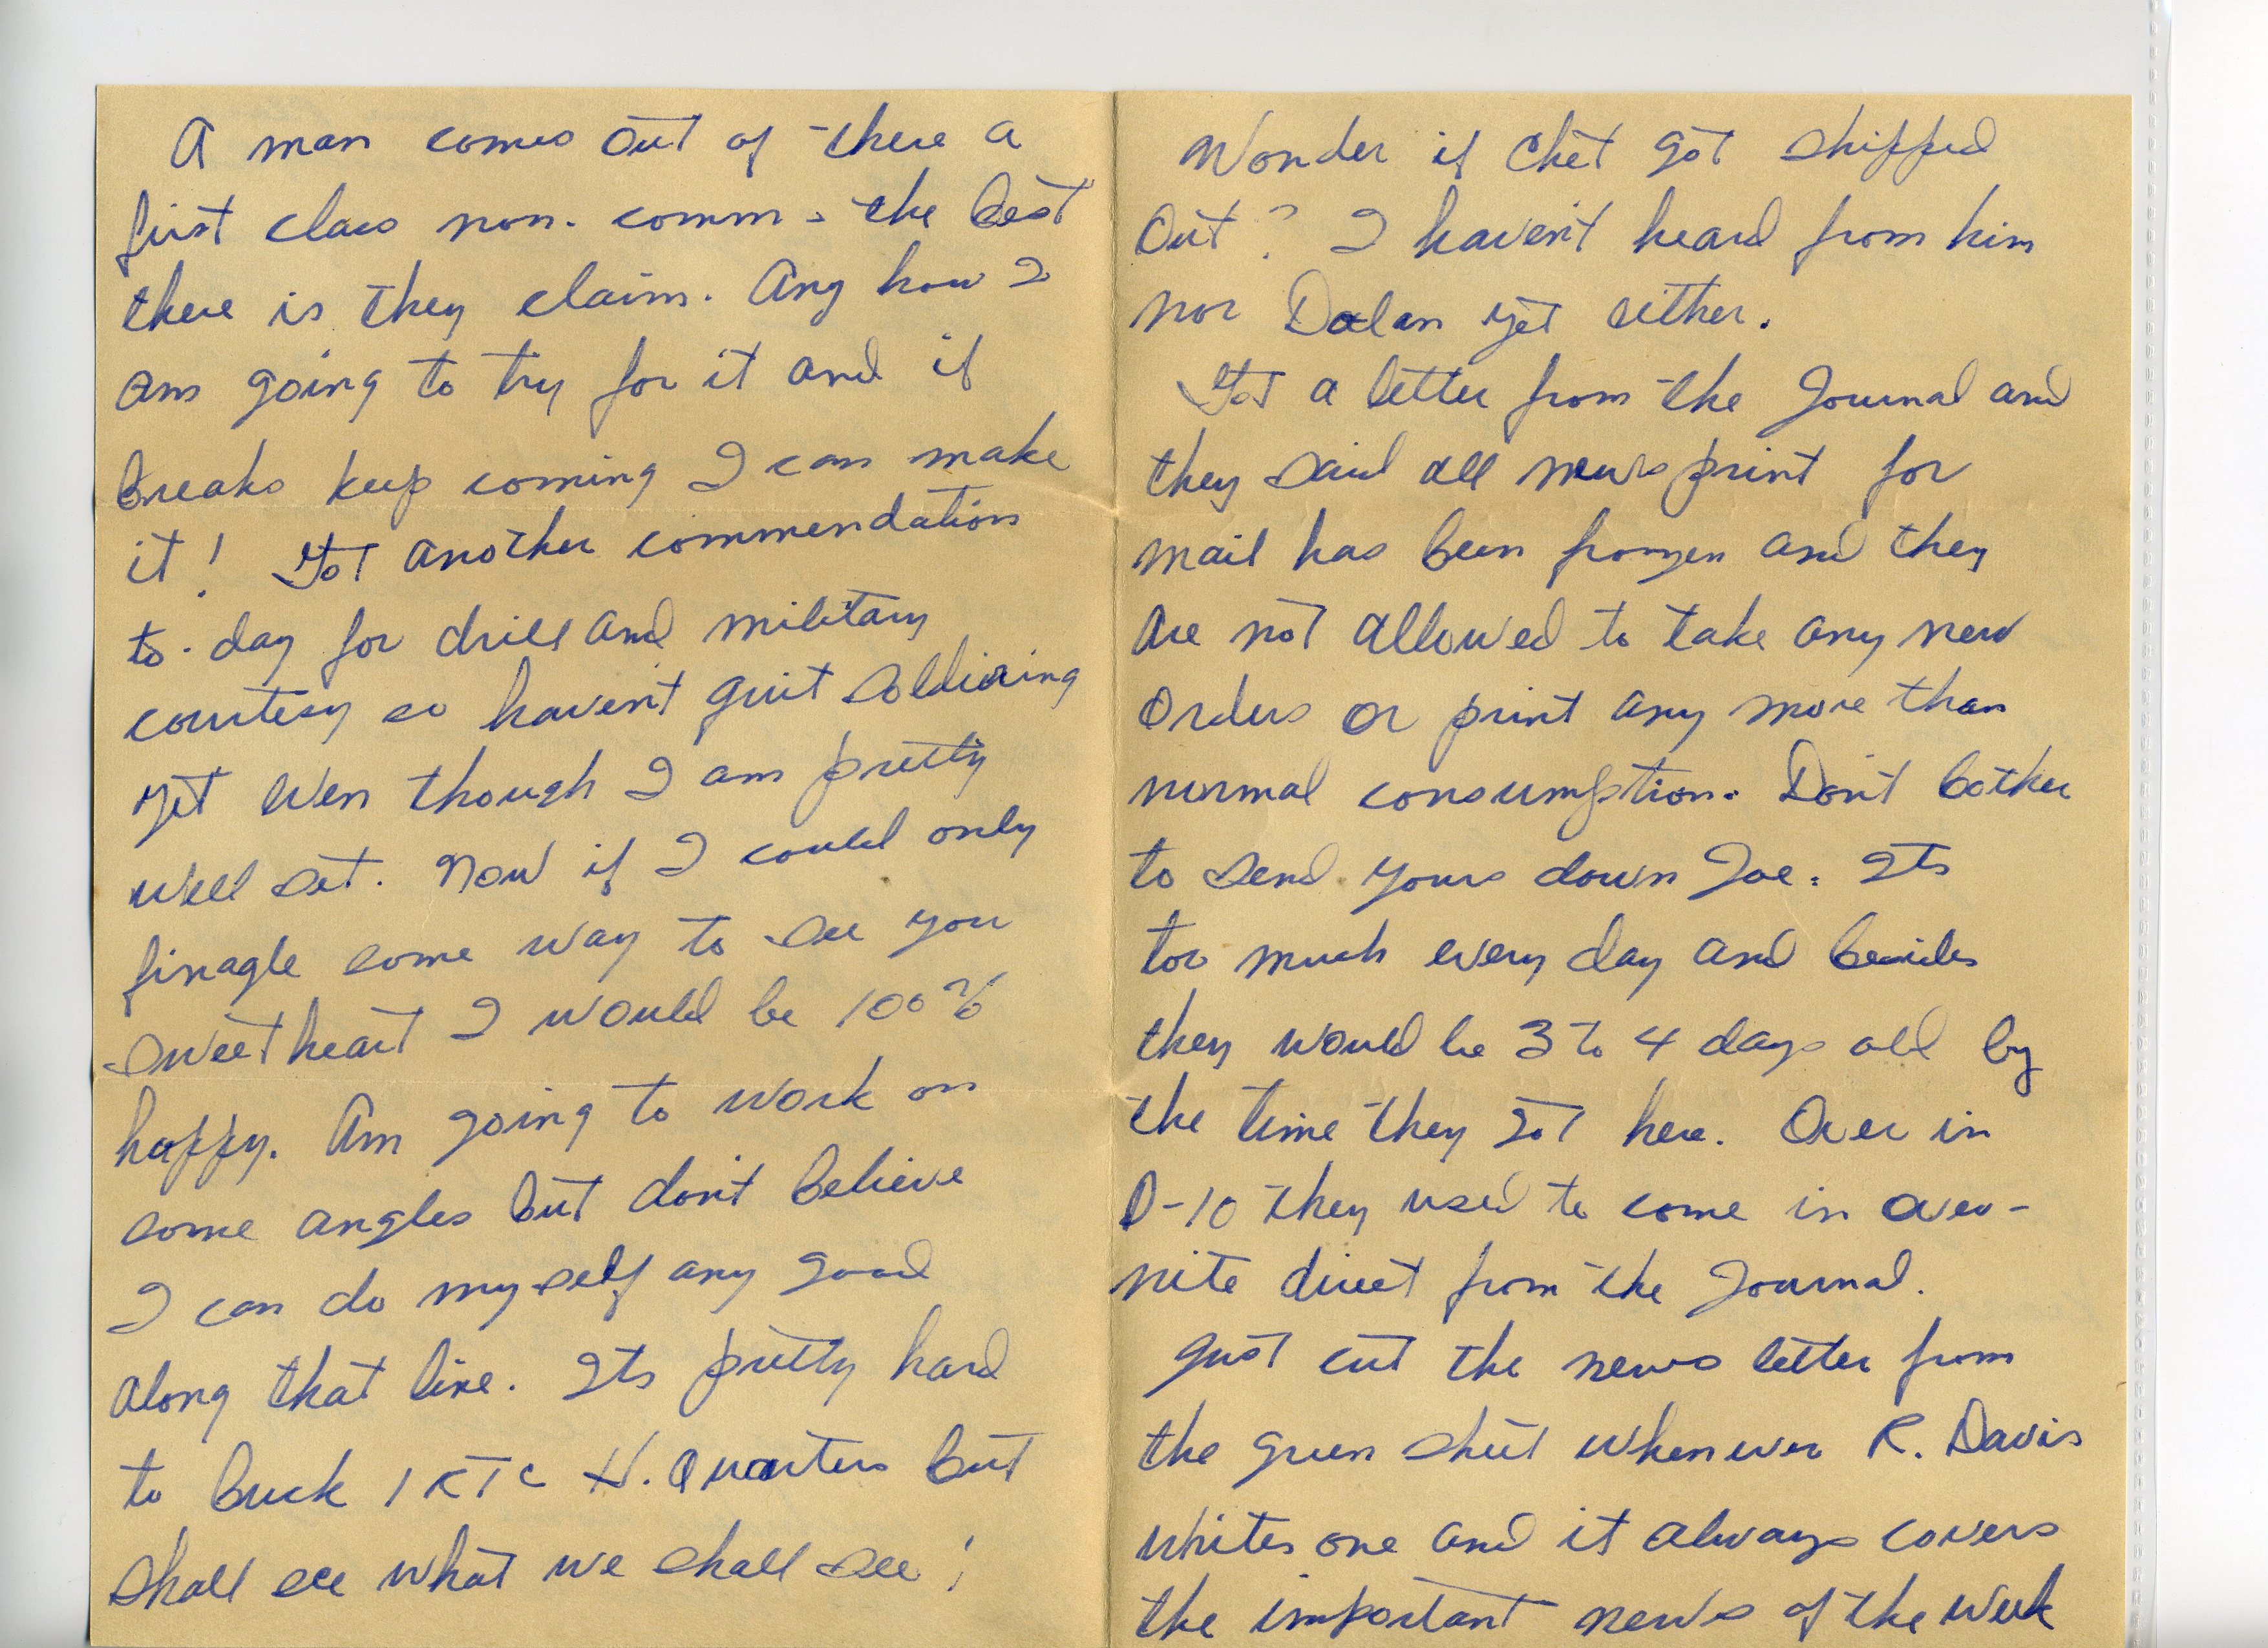 A man comes out of there a
first class non-comm - the best
there is they claim. Any how I
am going to try for it and if
breaks keep coming I can make
it! Got another commendation
to-day for drill and military
courtesy so haven't quit soldiering
yet even though I am pretty
well set. Now if I could only
finagle some way to see you
sweetheart I would be 100%
happy. Am going to work on
some angles but don't believe
I can do myself any good
along that line. Its pretty hard
to buck IRTC H. Quarters but
shall see what we shall see!
Wonder if Chet got shipped
out? I haven't heard from him
nor Dolan yet either.
Got a letter from the Journal and
they said all newsprint for
mail has been frozen and they
are not allowed to take any new
orders or print any more than
normal consumption. Don't bother
to send yours down Joe. Its
too much every day and besides
they would be 3 to 4 days old by
the time they got here. Over in
D-10 they used to come in over-
nite direct from the Journal.
Just cut the news letter from
the green sheet whenever R. Davis
writes one and it always covers
the important news of the week